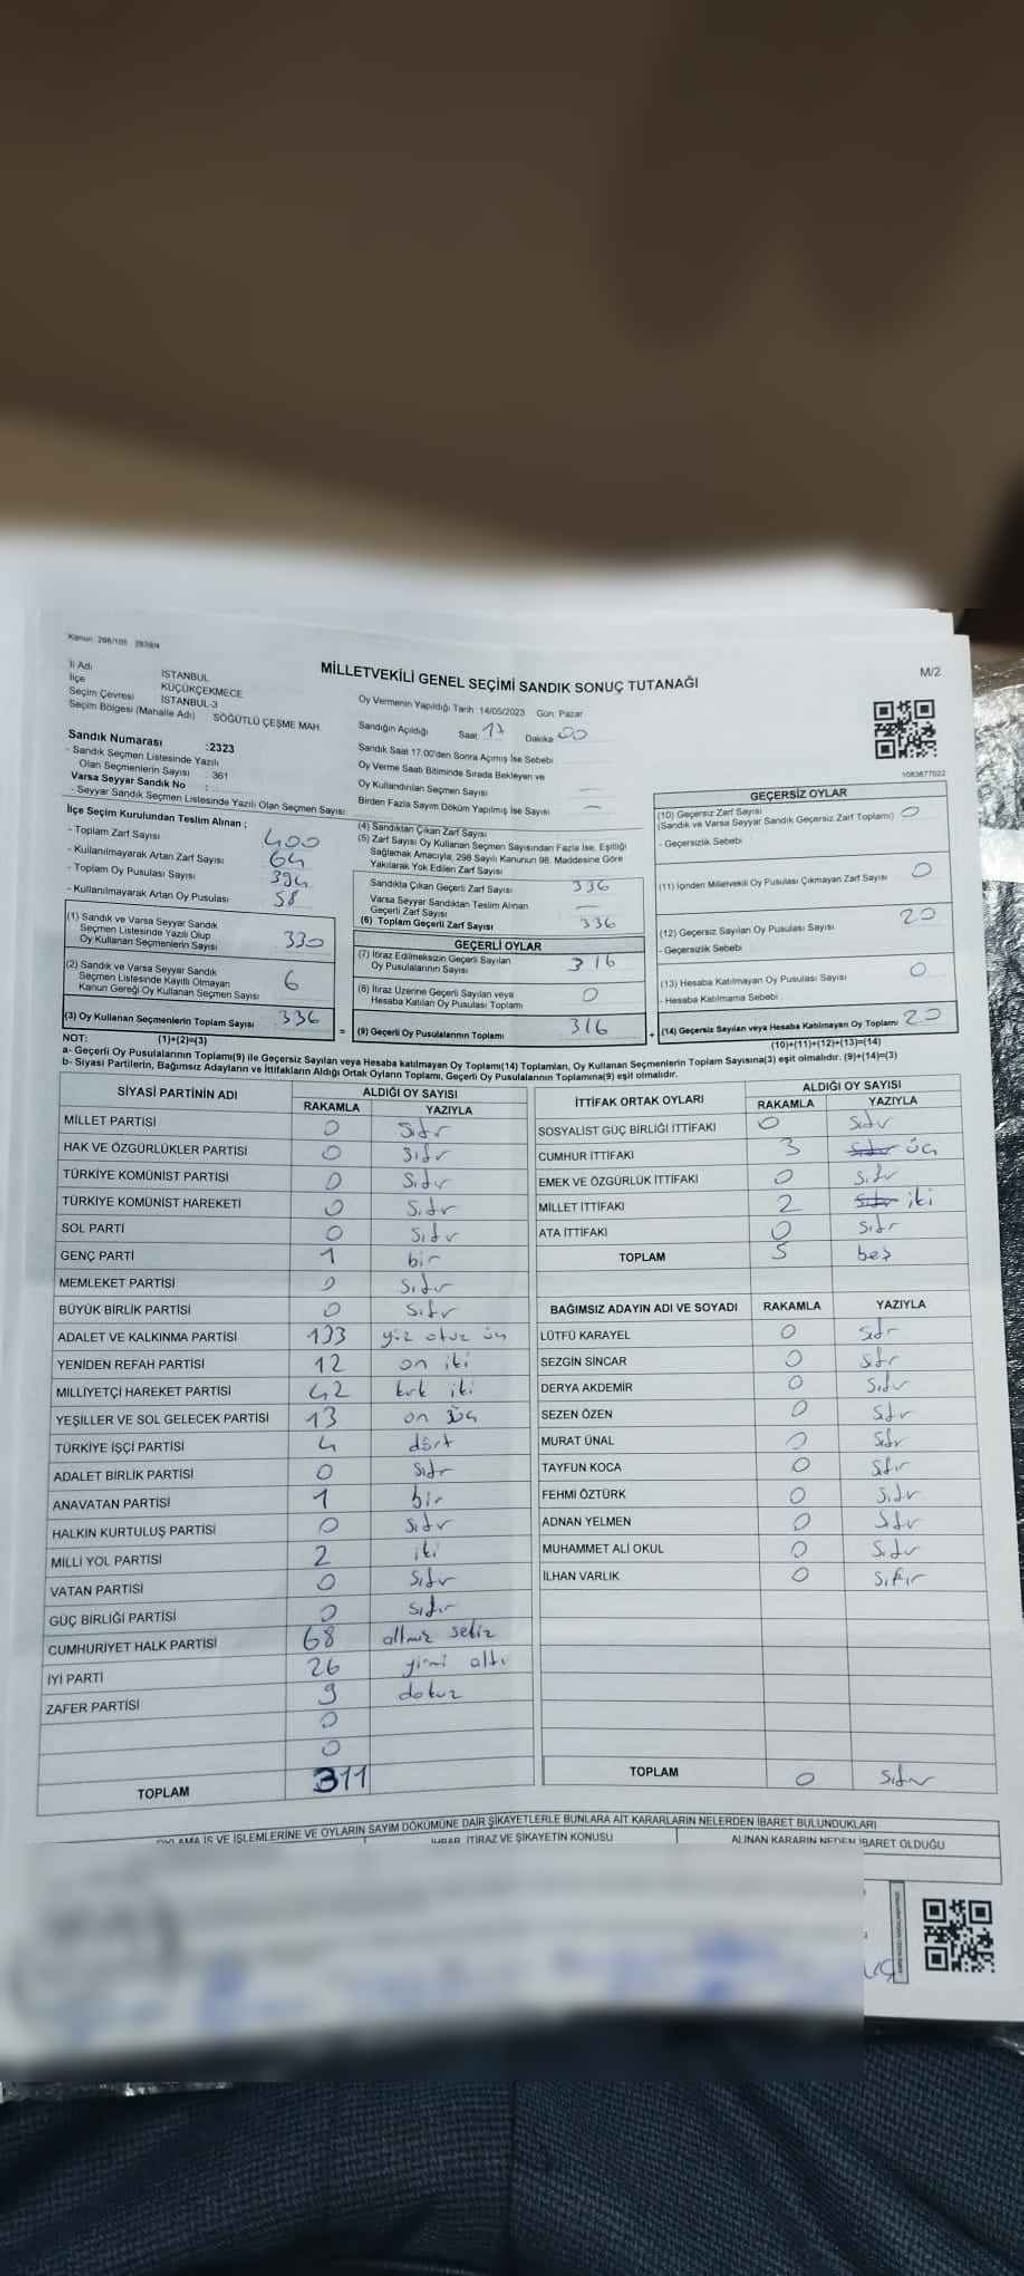 Kanun: 298/105
M/2
MİLLETVEKİLİ GENEL SEÇİMİ SANDIK SONUÇ TUTANAĞI
İl Adı İSTANBUL
İlçe KÜÇÜKÇEKMECE
Seçim Çevresi İSTANBUL-3
Seçim Bölgesi (Mahalle Adı) SÖĞÜTLÜ ÇEŞME MAH.
Sandık Numarası :2323
- Sandık Seçmen Listesinde Yazılı
Olan Seçmenlerin Sayısı : 361
Varsa Seyyar Sandık No :
- Seyyar Sandık Seçmen Listesinde Yazılı Olan Seçmen Sayısı:
Oy Vermenin Yapıldığı Tarih :14/05/2023 Gün: Pazar
Sandığın Açıldığı Saat 17 Dakika 00
Sandık Saat 17.00'den Sonra Açımış İse Sebebi
Oy Verme Saati Bitiminde Sırada Bekleyen ve
Oy Kullandırılan Seçmen Sayısı —
Birden Fazla Sayım Döküm Yapılmış İse Sayısı —
1083877022
İlçe Seçim Kurulundan Teslim Alınan ;
- Toplam Zarf Sayısı 400
- Kullanılmayarak Artan Zarf Sayısı 64
- Toplam Oy Pusulası Sayısı 394
- Kullanılmayarak Artan Oy Pusulası 58
(1) Sandık ve Varsa Seyyar Sandık
Seçmen Listesinde Yazılı Olup
Oy Kullanan Seçmenlerin Sayısı 330
(2) Sandık ve Varsa Seyyar Sandık
Seçmen Listesinde Kayıtlı Olmayan
Kanun Gereği Oy Kullanan Seçmen Sayısı 6
(3) Oy Kullanan Seçmenlerin Toplam Sayısı 336
(1)+(2)=(3)
(4) Sandıktan Çıkan Zarf Sayısı
(5) Zarf Sayısı Oy Kullanan Seçmen Sayısından Fazla İse, Eşitliği
Sağlamak Amacıyla, 298 Sayılı Kanunun 98. Maddesine Göre
Yakılarak Yok Edilen Zarf Sayısı
Sandıkta Çıkan Geçerli Zarf Sayısı 336
Varsa Seyyar Sandıktan Teslim Alınan
Geçerli Zarf Sayısı —
(6) Toplam Geçerli Zarf Sayısı 336
GEÇERLİ OYLAR
(7) İtiraz Edilmeksizin Geçerli Sayılan
Oy Pusulalarının Sayısı 316
(8) İtiraz Üzerine Geçerli Sayılan veya
Hesaba Katılan Oy Pusulası Toplamı 0
= (9) Geçerli Oy Pusulalarının Toplamı 316 +
GEÇERSİZ OYLAR
(10) Geçersiz Zarf Sayısı
(Sandık ve Varsa Seyyar Sandık Geçersiz Zarf Toplamı) 0
- Geçersizlik Sebebi
(11) İçinden Milletvekili Oy Pusulası Çıkmayan Zarf Sayısı 0
(12) Geçersiz Sayılan Oy Pusulası Sayısı 20
- Geçersizlik Sebebi
(13) Hesaba Katılmayan Oy Pusulası Sayısı 0
- Hesaba Katılmama Sebebi
(14) Geçersiz Sayılan veya Hesaba Katılmayan Oy Toplamı 20
(10)+(11)+(12)+(13)=(14)
NOT:
a- Geçerli Oy Pusulalarının Toplamı(9) ile Geçersiz Sayılan veya Hesaba katılmayan Oy Toplamı(14) Toplamları, Oy Kullanan Seçmenlerin Toplam Sayısına(3) eşit olmalıdır. (9)+(14)=(3)
b- Siyasi Partilerin, Bağımsız Adayların ve İttifakların Aldığı Ortak Oyların Toplamı, Geçerli Oy Pusulalarının Toplamına(9) eşit olmalıdır.
SİYASİ PARTİNİN ADI ALDIĞI OY SAYISI
RAKAMLA YAZIYLA
MİLLET PARTİSİ 0 Sıfır
HAK VE ÖZGÜRLÜKLER PARTİSİ 0 Sıfır
TÜRKİYE KOMÜNİST PARTİSİ 0 Sıfır
TÜRKİYE KOMÜNİST HAREKETİ 0 Sıfır
SOL PARTİ 0 Sıfır
GENÇ PARTİ 1 bir
MEMLEKET PARTİSİ 0 Sıfır
BÜYÜK BİRLİK PARTİSİ 0 Sıfır
ADALET VE KALKINMA PARTİSİ 133 yüz otuz üç
YENİDEN REFAH PARTİSİ 12 on iki
MİLLİYETÇİ HAREKET PARTİSİ 42 kırk iki
YEŞİLLER VE SOL GELECEK PARTİSİ 13 on üç
TÜRKİYE İŞÇİ PARTİSİ 4 dört
ADALET BİRLİK PARTİSİ 0 Sıfır
ANAVATAN PARTİSİ 1 bir
HALKIN KURTULUŞ PARTİSİ 0 Sıfır
MİLLİ YOL PARTİSİ 2 iki
VATAN PARTİSİ 0 Sıfır
GÜÇ BİRLİĞİ PARTİSİ 0 Sıfır
CUMHURİYET HALK PARTİSİ 68 altmış sekiz
İYİ PARTİ 26 yirmi altı
ZAFER PARTİSİ 9 dokuz
0
0
TOPLAM 311
İTTİFAK ORTAK OYLARI ALDIĞI OY SAYISI
RAKAMLA YAZIYLA
SOSYALİST GÜÇ BİRLİĞİ İTTİFAKI 0 Sıfır
CUMHUR İTTİFAKI 3 Sıfır üç
EMEK VE ÖZGÜRLÜK İTTİFAKI 0 Sıfır
MİLLET İTTİFAKI 2 Sıfır iki
ATA İTTİFAKI 0 Sıfır
TOPLAM 5 beş
BAĞIMSIZ ADAYIN ADI VE SOYADI RAKAMLA YAZIYLA
LÜTFÜ KARAYEL 0 Sıfır
SEZGİN SİNCAR 0 Sıfır
DERYA AKDEMİR 0 Sıfır
SEZEN ÖZEN 0 Sıfır
MURAT ÜNAL 0 Sıfır
TAYFUN KOCA 0 Sıfır
FEHMİ ÖZTÜRK 0 Sıfır
ADNAN YELMEN 0 Sıfır
MUHAMMET ALİ OKUL 0 Sıfır
İLHAN VARLIK 0 Sıfır
TOPLAM 0 Sıfır
İŞ VE İŞLEMLERİNE VE OYLARIN SAYIM DÖKÜMÜNE DAİR ŞİKAYETLERLE BUNLARA AİT KARARLARIN NELERDEN İBARET BULUNDUKLARI
İHBAR, İTİRAZ VE ŞİKAYETİN KONUSU
ALINAN KARARIN NEDEN İBARET OLDUĞU